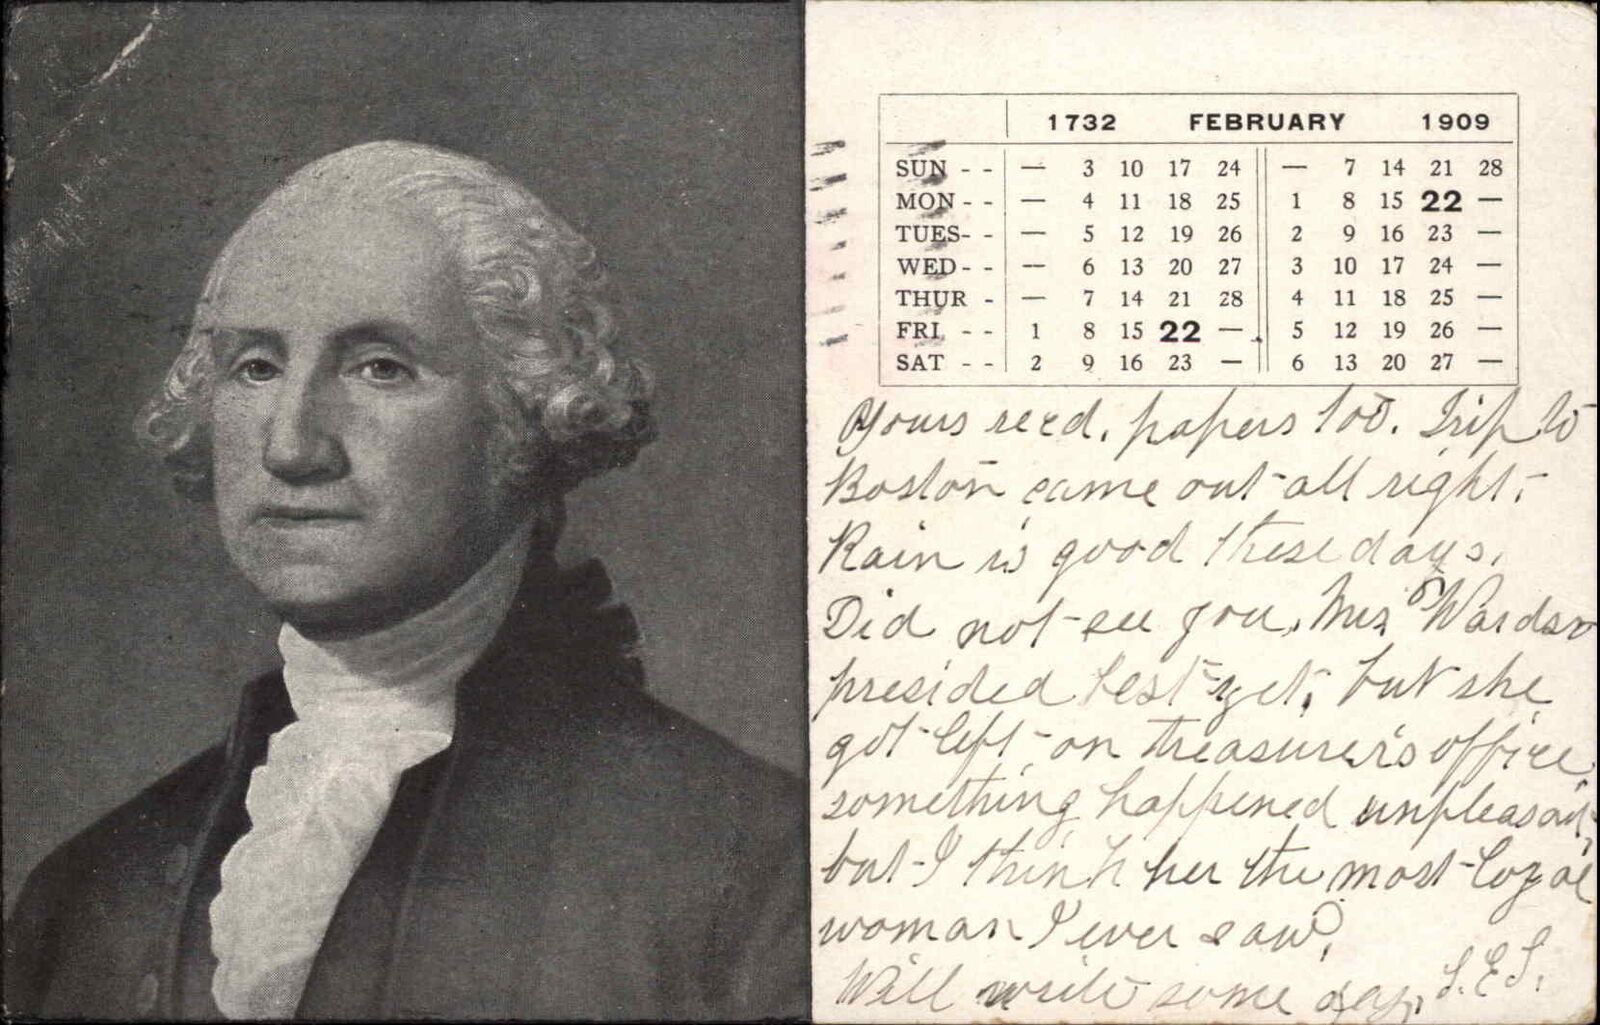 1732 FEBRUARY 1909
SUN - - — 3 10 17 24 — 7 14 21 28
MON - - — 4 11 18 25 1 8 15 22 —
TUES- - — 5 12 19 26 2 9 16 23 —
WED - - — 6 13 20 27 3 10 17 24 —
THUR - — 7 14 21 28 4 11 18 25 —
FRI - - 1 8 15 22 — 5 12 19 26 —
SAT - - 2 9 16 23 — 6 13 20 27 —
Yours recd, papers too. Trip to
Boston came out all right,
Rain is good these days.
Did not see you. Mrs
presided best yet, but she
got left on treasurer's office,
something happened unpleasant,
but I think her the most loyal
woman I ever saw.
Will write some day, S.E.S.